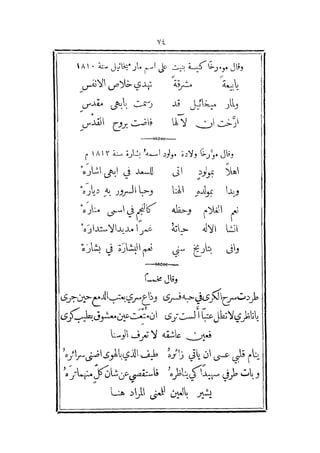 ٧٤
وقال مؤرخا كنيسة بنيت على اسم مار ميخائيل سنة ١٨١٠
يابيعة مشرقة تهدي خلاص الانفس
ولمار ميخائيل قد رسمت بابهى مقدس
ارّخت ان لآلها فاضت بروح القدس
وقال مؤرخا ولادة مولود اسمه بشارة سنة ١٨١٣ م
اهلاً بمولود اتى للسعد في ابهى اشاره
وبدا بمولده الهنا وحبا السرور به دياره
نعم الغلام وحظه كالنجم في اسمى مناره
انشا الاله حياته عمراً مديد الاستداره
وافى بتاريخ سني نعم البشارة في بشاره
وقال مخمسا
طردت سرح الكرى في حبه فسرى وذاع سري بعتب الدمع حين جرى
يا ناظري لا تطل عتباً ألست ترى ان متّعت عين معشوق بطيب كرى
فعين عاشقه لا تعرف الوسنا
ينام قلبي عسى ان ياتي زائره طيف الذي بالهوى اضنى سرائره
وبات طرفي سهيداً كي يناظره فاستقصي عن شان كلٍ منهما تره
يشير بالعين للمعنى المراد هنا